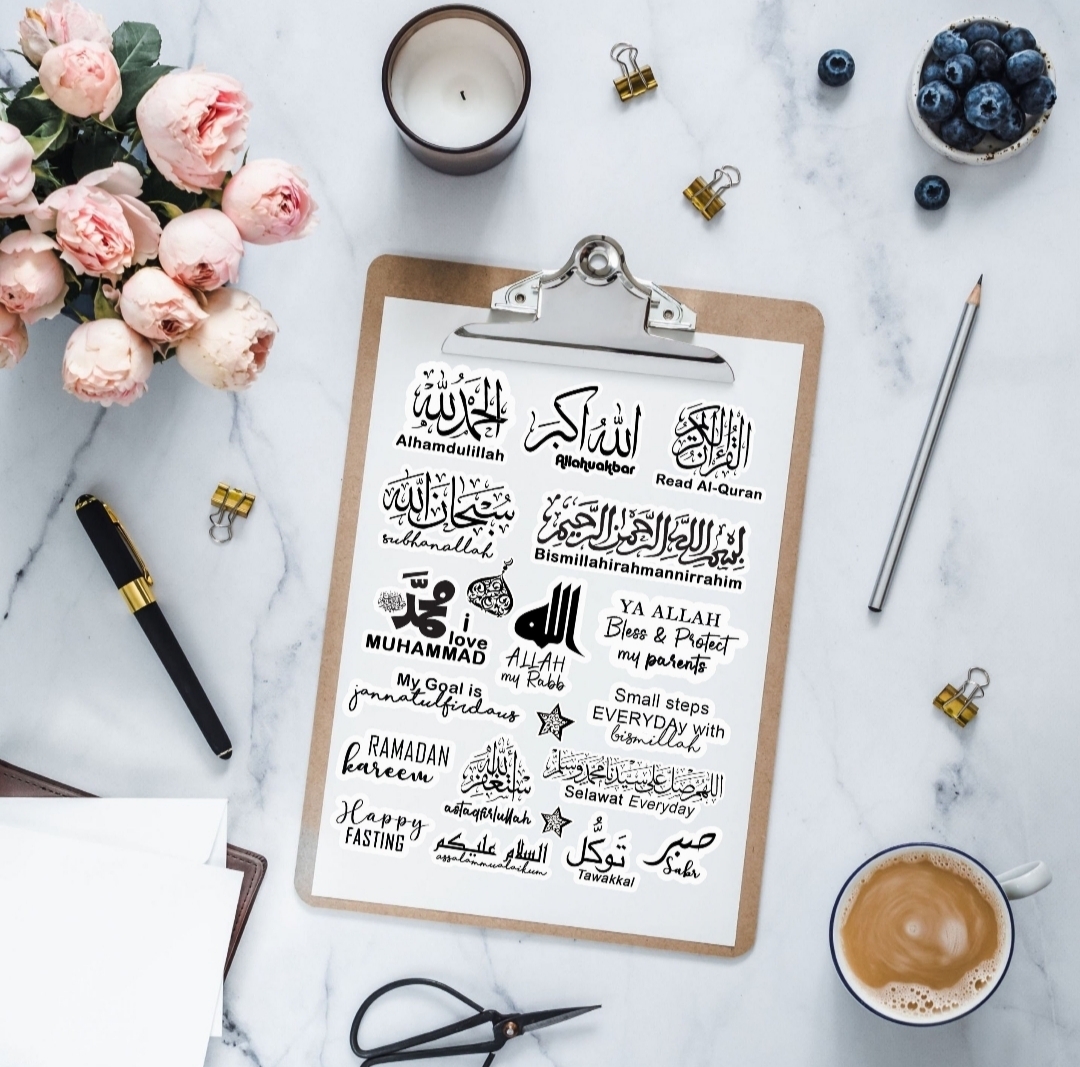 الحمد لله
Alhamdulillah
الله أكبر
Allahuakbar
القرآن الكريم
Read Al-Quran
سُبْحَانَ اللَّه
subhanallah
بِسْمِ اللَّهِ الرَّحْمَنِ الرَّحِيمِ
Bismillahirahmannirrahim
محمد
i
love
MUHAMMAD
الله
ALLAH
my Rabb
YA ALLAH
Bless & Protect
my parents
My Goal is
jannatulfirdaus
Small steps
EVERYDAy with
bismillah
RAMADAN
kareem
أستغفر الله
astaqfirlullah
اللهم صل على سيدنا محمد وسلم
Selawat Everyday
Happy
FASTING
السلام عليكم
assalammualaikum
تَوَكُّل
Tawakkal
صبر
Sabr